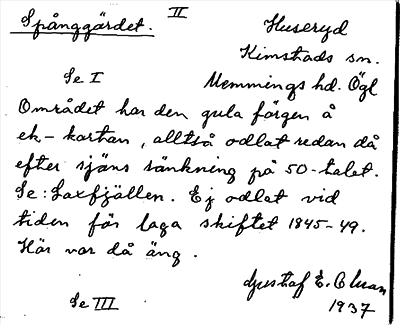 Spånggärdet. II
Huseryd
Kimstads sn.
Se I Memmings hd. Ögl
Området har den gula färgen å
ek-kartan, alltså odlat redan då
efter sjöns sänkning på 50-talet.
Se: Laxfjällen. Ej odlat vid
tiden för laga skiftet 1845-49.
Här var då äng.
Gustaf E.
Se III 1937